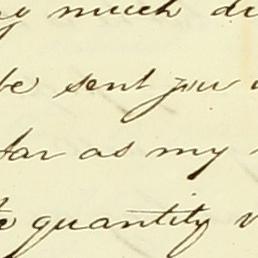 much
be sent you
far as my
quantity